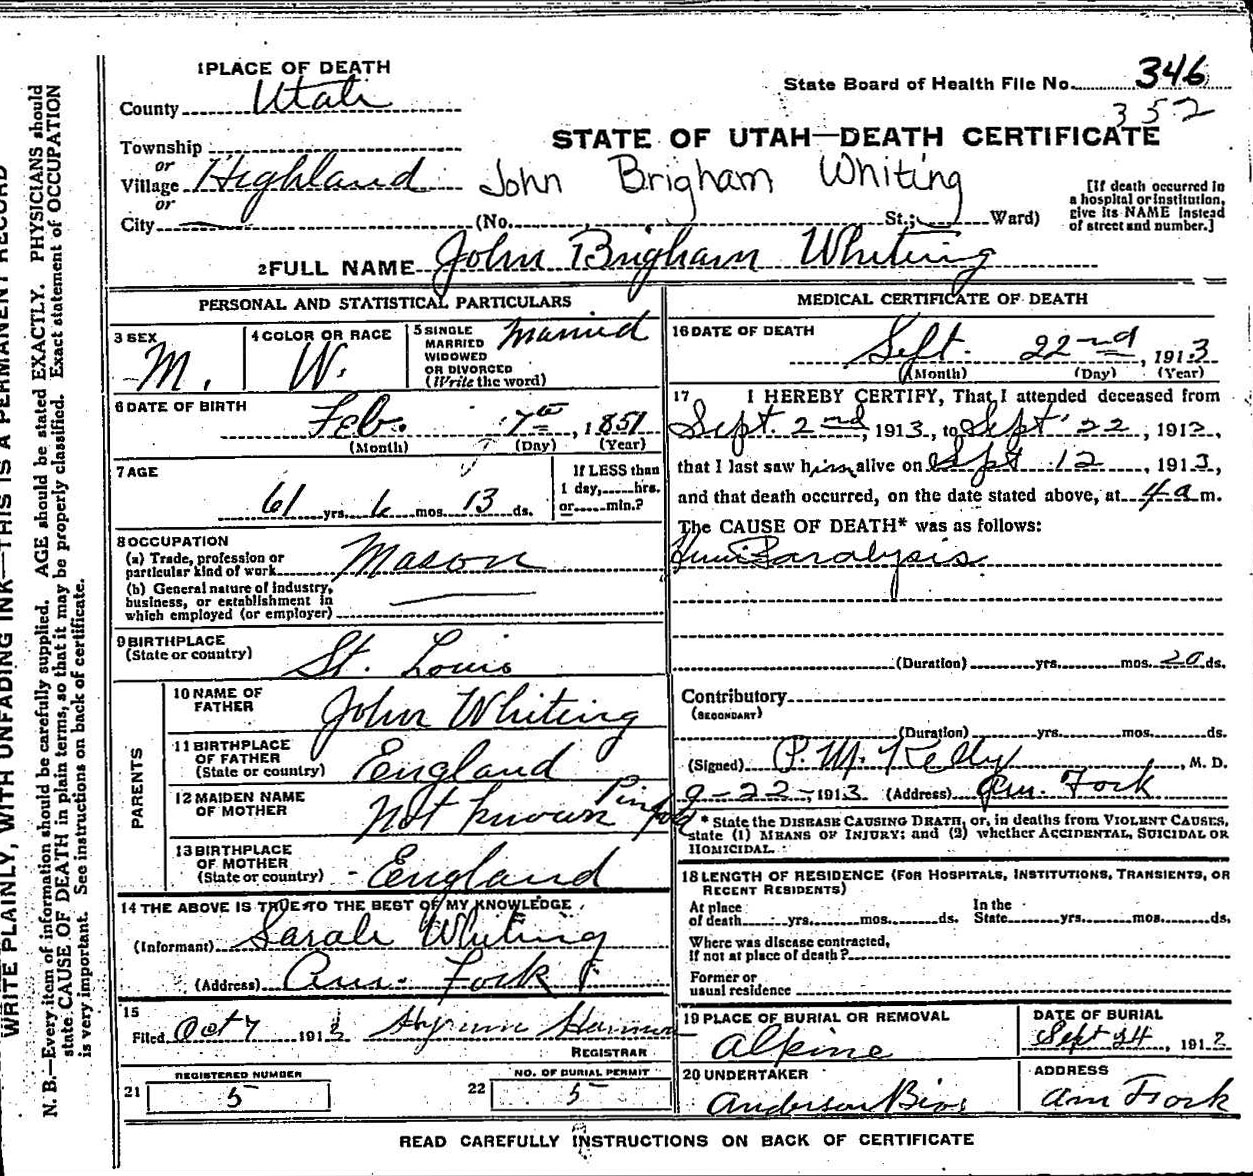 WRITE PLAINLY, WITH UNFADING INK—THIS IS A PERMANENT RECORD
N. B.—Every item of information should be carefully supplied. AGE should be stated EXACTLY. PHYSICIANS should
state CAUSE OF DEATH in plain terms, so that it may be properly classified. Exact statement of OCCUPATION
is very important. See instructions on back of certificate.
1 PLACE OF DEATH
County Utah
State Board of Health File No. 346
352
STATE OF UTAH—DEATH CERTIFICATE
Township
or
Village Highland
John Brigham Whiting
or
City (No. St.; Ward)
[If death occurred in
a hospital or institution,
give its NAME instead
of street and number.]
2 FULL NAME John Brigham Whiting
PERSONAL AND STATISTICAL PARTICULARS
3 SEX
M.
4 COLOR OR RACE
W.
5 SINGLE
MARRIED
WIDOWED
OR DIVORCED
(Write the word)
Married
6 DATE OF BIRTH
Feb. 7th, 1851
(Month) (Day) (Year)
7 AGE
61 yrs. 6 mos. 13 ds.
If LESS than
1 day, hrs.
or min.?
8 OCCUPATION
(a) Trade, profession or
particular kind of work Mason
(b) General nature of industry,
business, or establishment in
which employed (or employer)
9 BIRTHPLACE
(State or country) St. Louis
PARENTS
10 NAME OF
FATHER John Whiting
11 BIRTHPLACE
OF FATHER
(State or country) England
12 MAIDEN NAME
OF MOTHER Not known Pinfold
13 BIRTHPLACE
OF MOTHER
(State or country) England
14 THE ABOVE IS TRUE TO THE BEST OF MY KNOWLEDGE
(Informant) Sarah Whiting
(Address) Am. Fork
15
Filed Oct 7 1913 Hyrum
REGISTRAR
REGISTERED NUMBER
21 5
NO. OF BURIAL PERMIT
22 5
MEDICAL CERTIFICATE OF DEATH
16 DATE OF DEATH
Sept. 22nd, 1913
(Month) (Day) (Year)
17 I HEREBY CERTIFY, That I attended deceased from
Sept. 2nd, 1913, to Sept 22, 1913,
that I last saw him alive on Sept 12, 1913,
and that death occurred, on the date stated above, at 4 a m.
The CAUSE OF DEATH* was as follows:
Paralysis
(Duration) yrs. mos. 20 ds.
Contributory
(SECONDARY)
(Duration) yrs. mos. ds.
(Signed) P. M. Kelly, M. D.
9-22-, 1913 (Address) Am. Fork
* State the DISEASE CAUSING DEATH, or, in deaths from VIOLENT CAUSES,
state (1) MEANS OF INJURY; and (2) whether ACCIDENTAL, SUICIDAL OR
HOMICIDAL.
18 LENGTH OF RESIDENCE (FOR HOSPITALS, INSTITUTIONS, TRANSIENTS, OR
RECENT RESIDENTS)
At place In the
of death yrs. mos. ds. State yrs. mos. ds.
Where was disease contracted,
If not at place of death?
Former or
usual residence
19 PLACE OF BURIAL OR REMOVAL
Alpine
DATE OF BURIAL
Sept 24, 1912
20 UNDERTAKER
Anderson Bros
ADDRESS
Am Fork
READ CAREFULLY INSTRUCTIONS ON BACK OF CERTIFICATE